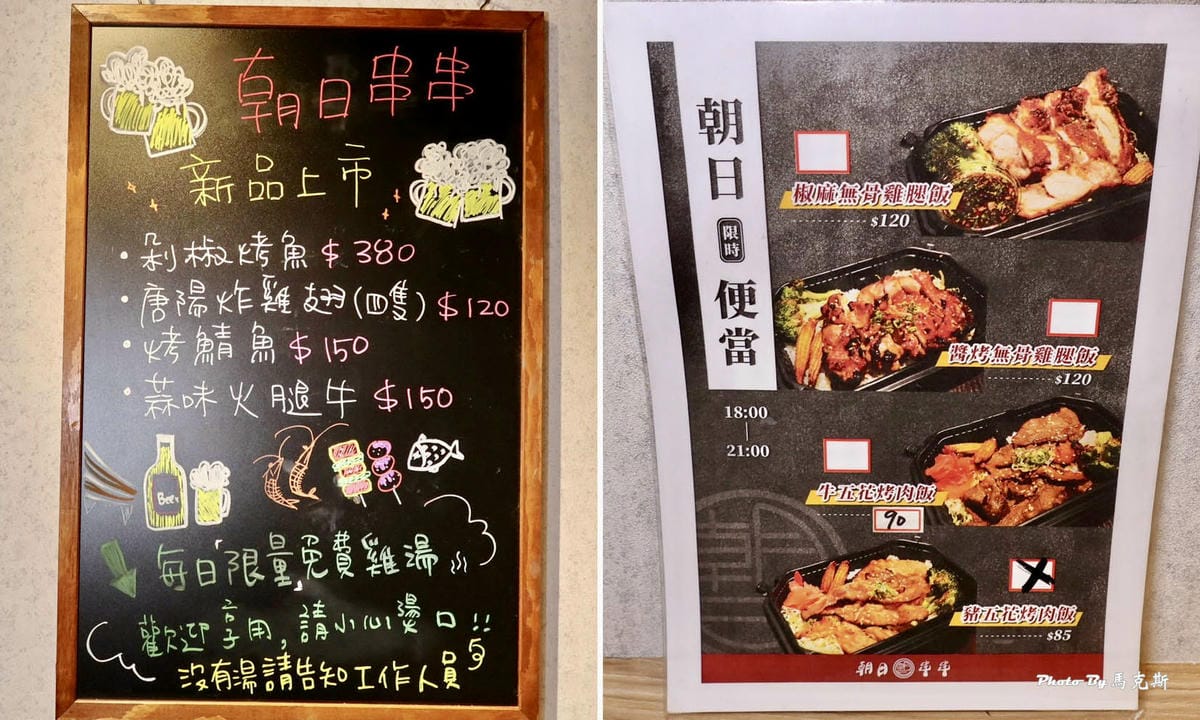 朝日串串
新品上市
・剁椒烤魚 $380
・唐陽炸雞翅(四隻) $120
・烤鯖魚 $150
・蒜味火腿牛 $150
Beer
每日限量免費雞湯
歡迎享用,請小心燙口!!
沒有湯請告知工作人員
朝日
限時
便當
18:00
|
21:00
椒麻無骨雞腿飯
$120
醬烤無骨雞腿飯
$120
牛五花烤肉飯
90
豬五花烤肉飯
$85
朝日串串
Photo By 馬克斯